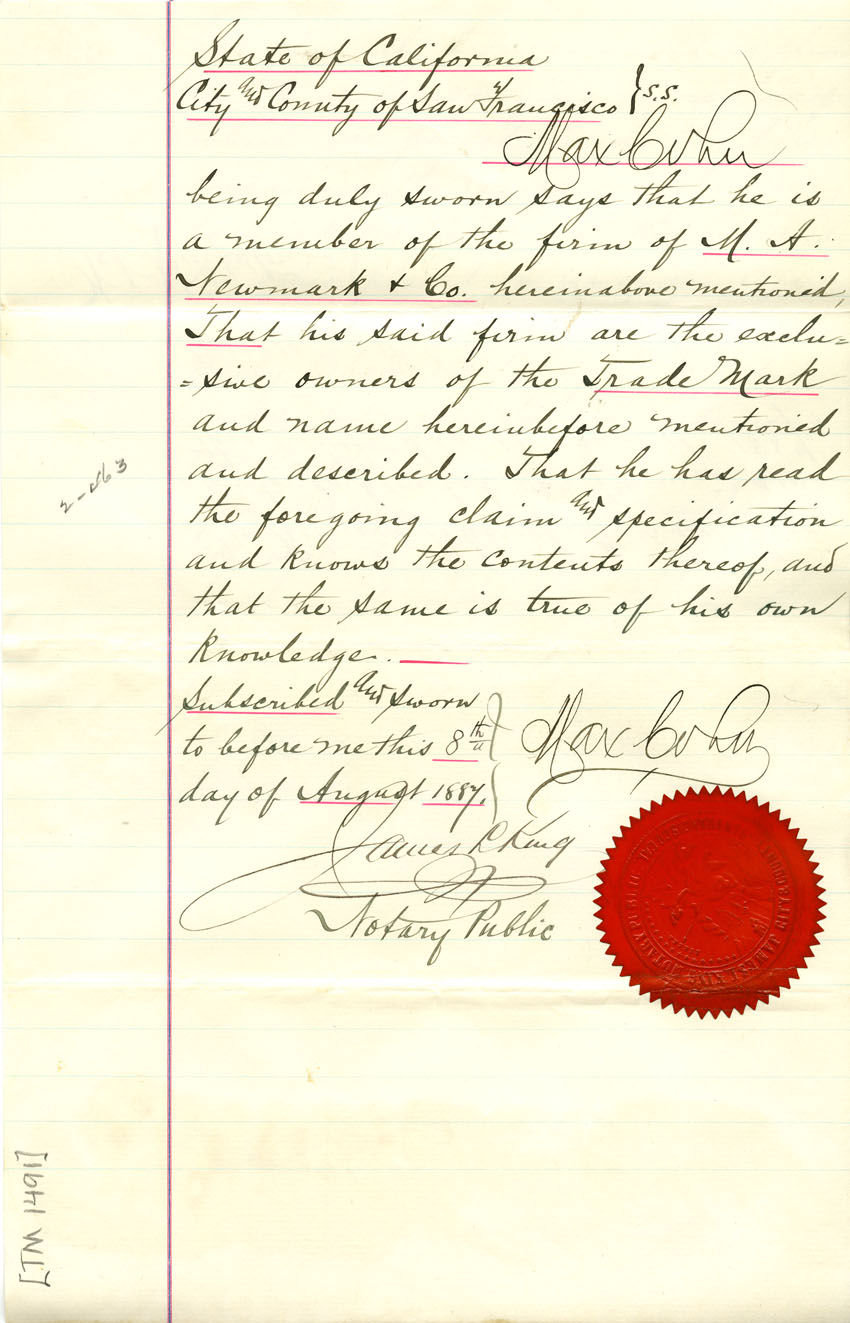 State of California
City and County of San Francisco } s.s.
Max Cohn
being duly sworn says that he is
a member of the firm of M. A.
Newmark & Co. hereinabove mentioned,
That his said firm are the exclu=
=sive owners of the Trade Mark
and name hereinbefore mentioned
and described. That he has read
the foregoing claim and specification
and knows the contents thereof, and
that the same is true of his own
knowledge.
Subscribed and sworn
to before me this 8th
day of August 1887.
Max Cohn
James L King
Notary Public
2-263
[TM 1491]